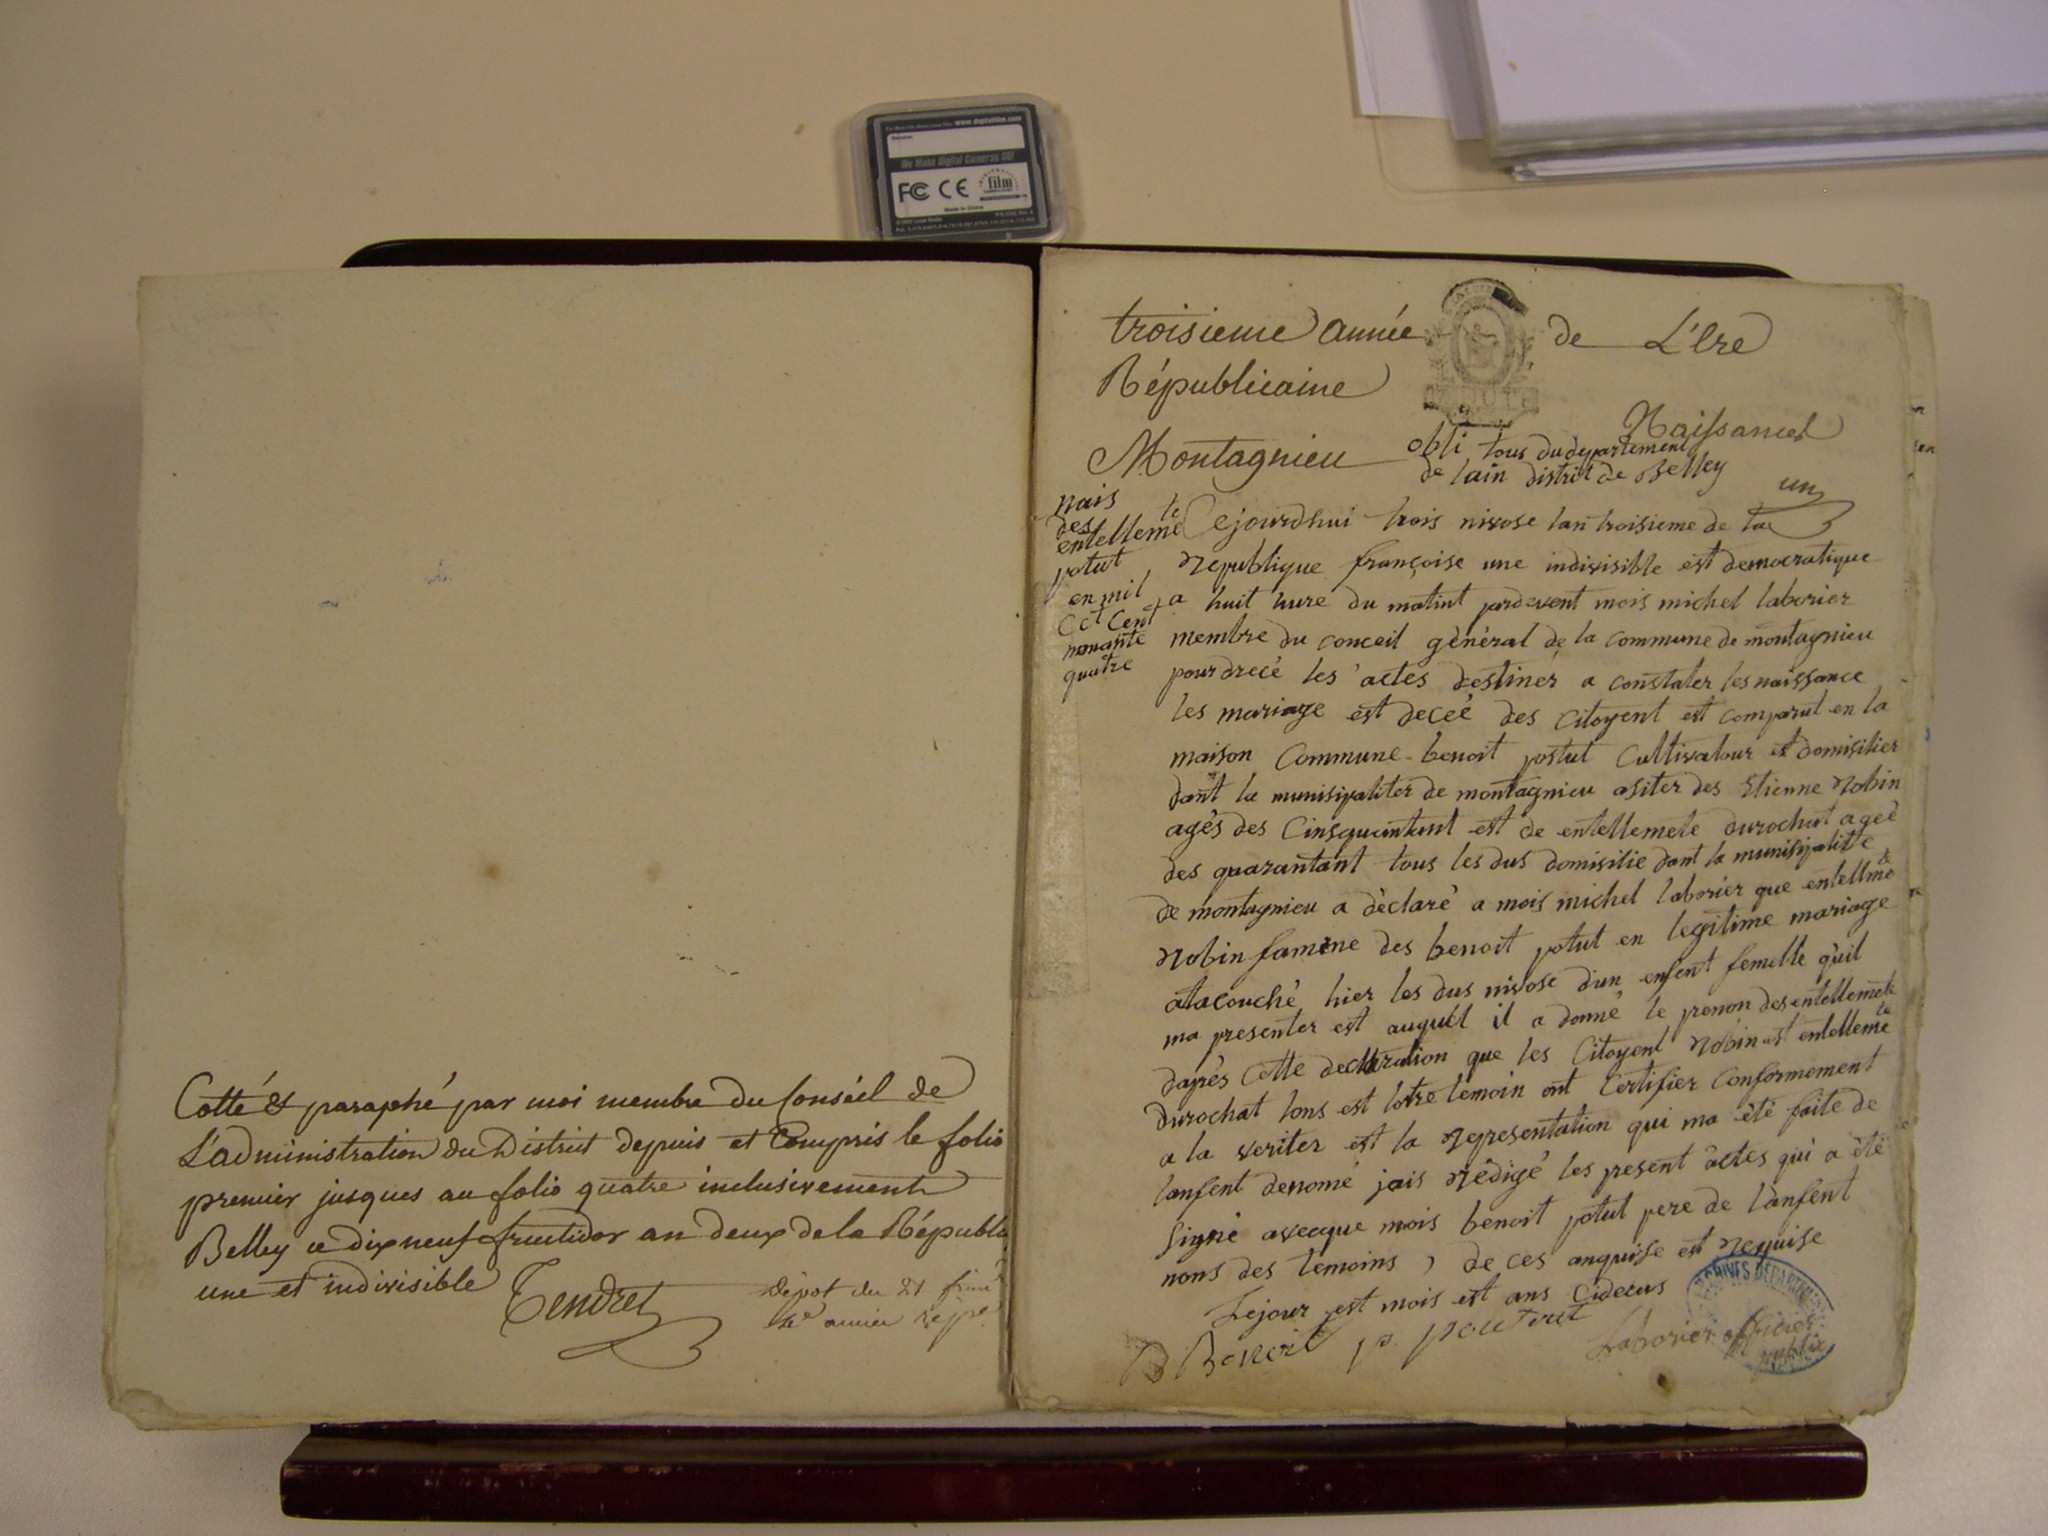 www.digitalfilm.com
We Make Digital Cameras GO!
FC CE film
Made in China
Cotté & paraphé par moi membre du Conseil de
L'administration du District depuis et Compris le folio
premier jusques au folio quatre inclusivement
Belley ce dix neuf fructidor an deux de la Républi
une et indivisible
Tendret
Dépot du 21
troisieme année de L'Ere
Républicaine
Naissances
Montagnieu obli tous du departement
de lain district de Belley
un
nais
des
entelleme te
potut
en mil
cet cent
nonante
quatre
Cejourdhui trois nivose lan troisieme de la
Republique françoise une indivisible est democratique
a huit hure du matint pardevent mois michel laborier
membre du conceil général de la commune de montagnieu
pour drecé les actes destinés a constater les naissance
les mariage est deceé des citoyent est comparut en la
maison Commune benoit postut Cultivatour est domisilier
dant la munisipaliter de montagnieu asiter des Etienne Robin
agés des Cinsquantant est de entellemete durochat ageé
des quarantant tous les dus domisilie dant la munisipalitte
de montagnieu a déclaré a mois michel laborier que entellme te
Robin famene des benoit potut en legitime mariage
atacouché hier les dus nivose dun enfent femelle quil
ma presenter est auquél il a donné le prenon des entellemete
daprés cette declaration que les Citoyent Robin est entelleme te
durochat lons est lotre temoin ont Certifier Conformement
a la veriter est la representation qui ma été faite de
lanfent denomé jais rédigé les present actes qui a été
signé avecque mois benoit potut pere de lanfent
nons des temoins, de ces anquise est requise
Lejour est mois est ans Cidecus
Benoit p. poutout
Laborier officier
publix
ARCHIVES DÉPARTEM